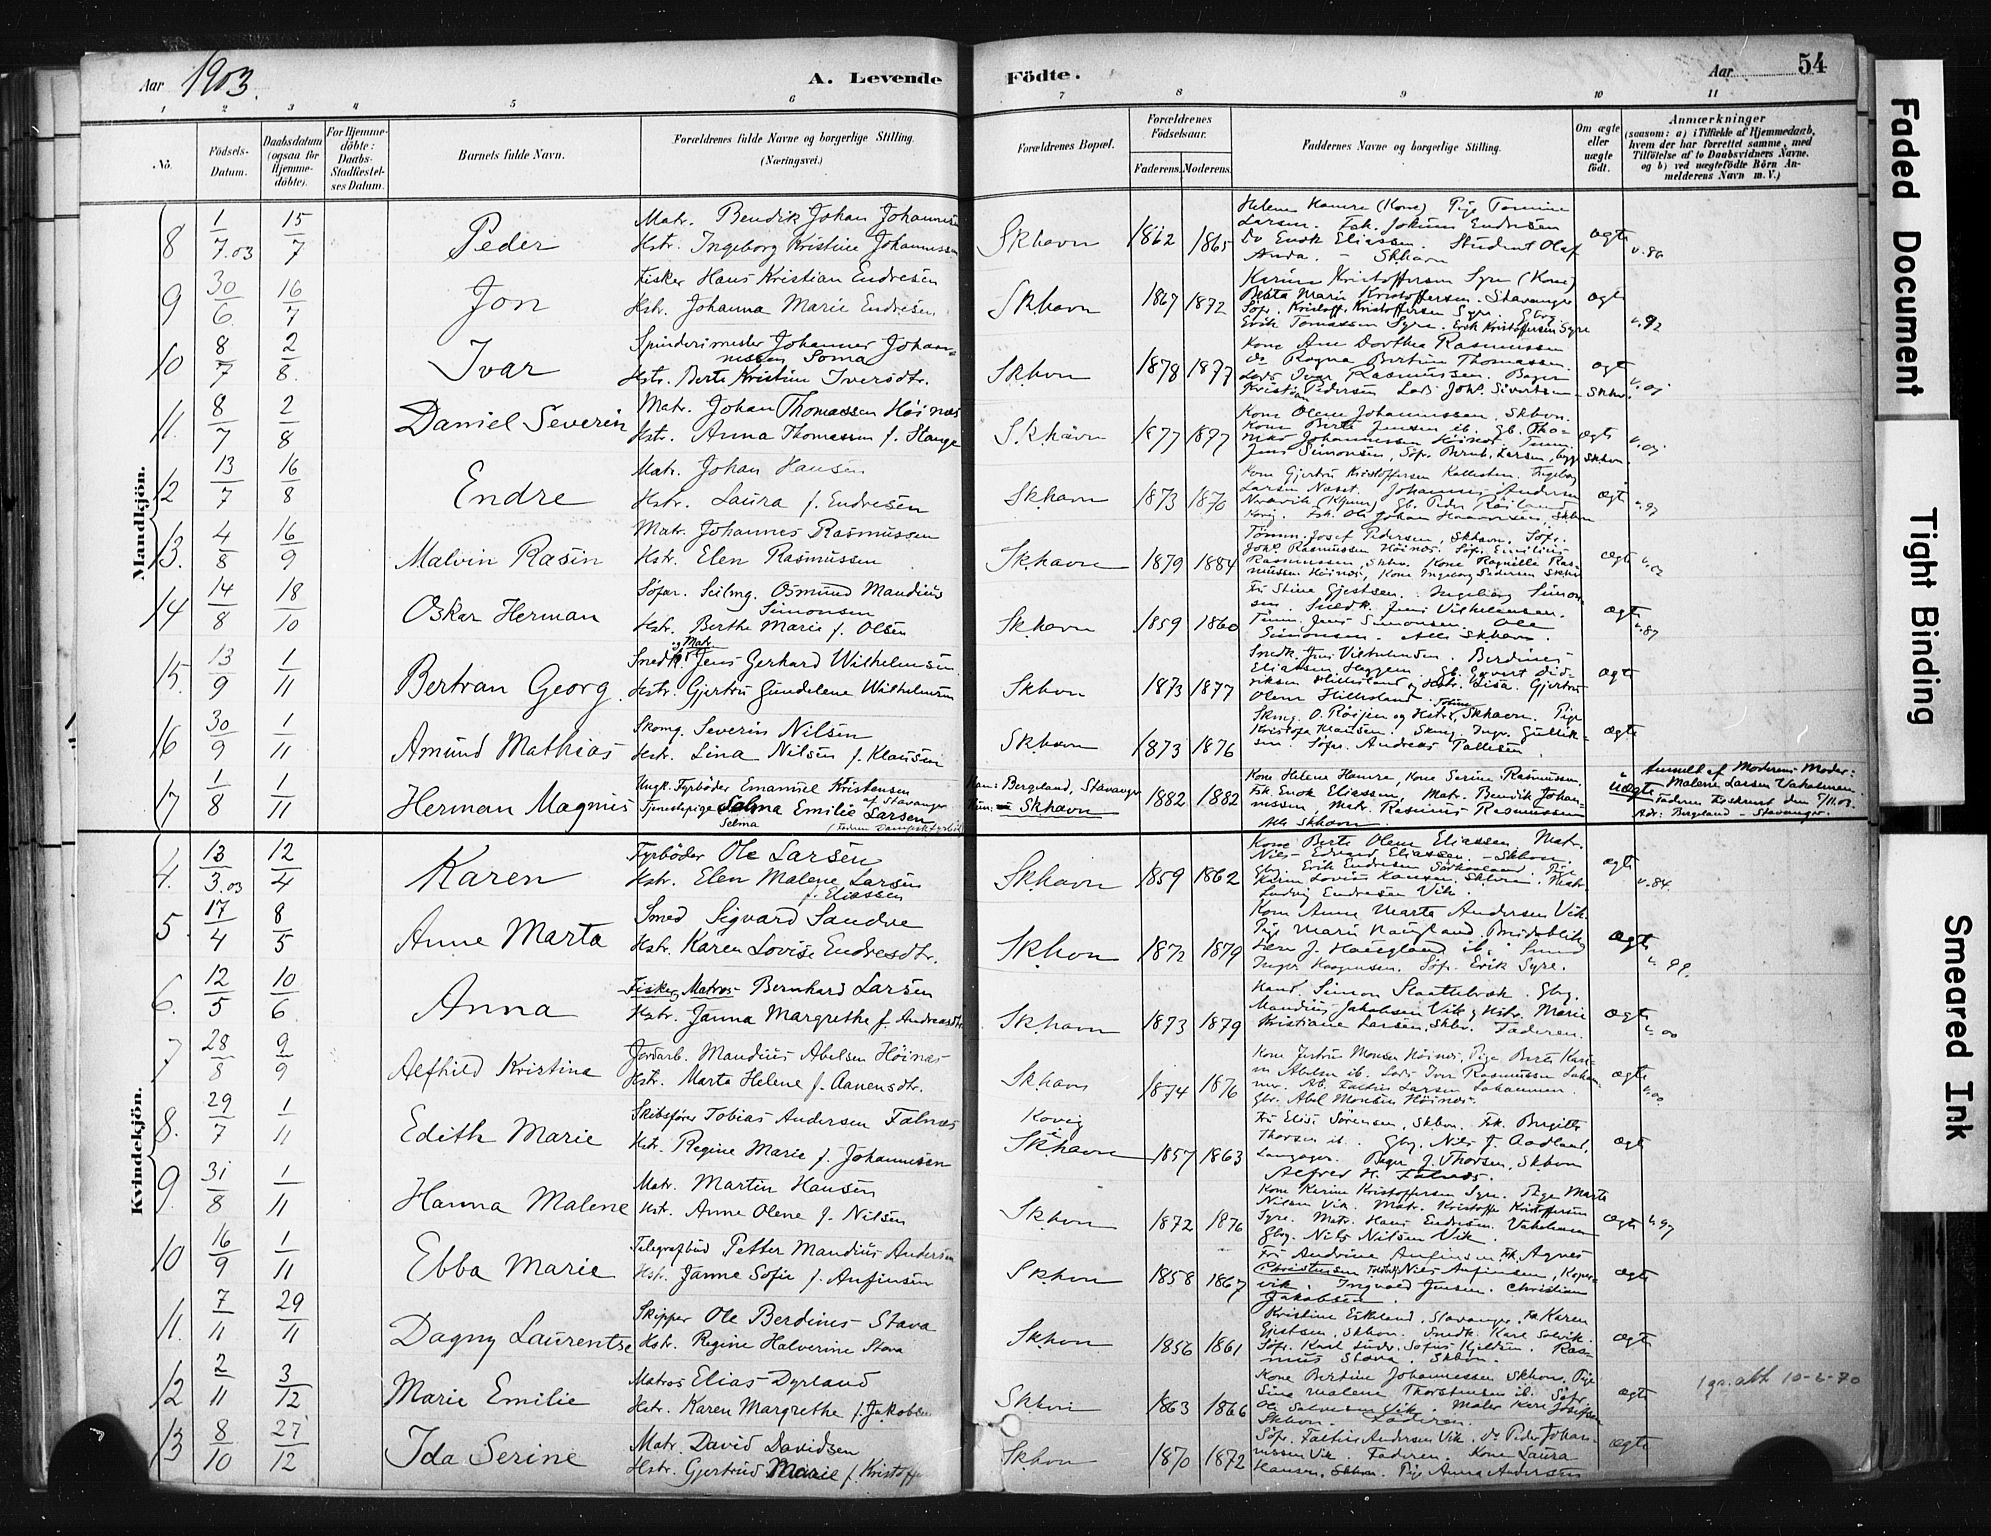 Aar 1903.
A. Levende
Födte.
Aar 54
1 2 3 4 5 6 7 8 9 10 11
No.
Födsels-
Datum.
Daabsdatum
(ogsaa for
Hjemme-
döbte).
For Hjemme-
döbte:
Daabs-
Stadfæstel-
ses Datum.
Barnets fulde Navn.
Forældrenes fulde Navne og borgerlige Stilling.
(Næringsvei.)
Forældrenes Bopæl.
Forældrenes
Födselsaar.
Faderens. Moderens.
Faddernes Navne og borgerlige Stilling.
Om ægte
eller
uægte
födt.
Anmærkninger
(saasom: a) i Tilfælde af Hjemmedaab,
hvem der har forrettet samme, med
Tilföielse af to Daabsvidners Navne.
og b) ved uægtefödte Börn An-
melderens Navn m. V.)
Mandkjön.
8 1/7.03 15/7 Peder
Matr. Bendik Johan Johannesen
Hstr. Ingeborg Kristine Johannessen
Skhavn 1862 1865
Helene Hamre (Kone) Pige Tomine
Larsen. Fsk. Jokum Endresen
Do Enok Eliassen. Student Olaf
Anda. - Skhavn
ægte
9 30/6 16/7 Jon
Fisker Hans Kristian Endresen
Hstr. Johanna Marie Endresen
Skhavn 1867 1872
Karine Kristoffersen Syre (Kone)
Berta Marie Kristoffersen. Stavanger
Söfr. Kristoff. Kristoffersen Syre. Gbrg.
Erik Tomassen Syre. Erik Kristoffersen Syre
ægte v. 92
10 8/7 2/8. Ivar
Spinderimester Johannes Johan-
nessen Soma
Hstr. Berte Kristine Iversdtr.
Skhvn 1878 1877
Kone Ane Dorthea Rasmussen
do Ragna Bertine Thomassen
Lods Ivar Rasmussen. Bager
Kristian Pedersen Lods Johs. Sivertsen - Skhvn.
ægte
11. 8/7 2/8 Daniel Severin
Matr. Johan Thomassen Höinæs
Hstr. Anna Thomassen f. Stange
Skhavn 1877 1877
Kone Olene Johannessen. Skhvn.
Kone Berte Jensen ib. Gb. Tho-
mas Johannessen Höinæs. Tømm.
Jens Simonsen, Söfr. Bernt. Larsen, begge Skhvn.
ægte
12 13/7 16/8 Endre
Matr. Johan Hansen
Hstr. Laura f. Endresen
Skhavn 1873 1870
Kone Gjertru Kristoffersen
Larsen Næset. Johannes Andersen
ægte v. 97
13. 4/8 16/9 Malvin Rasin
Matr. Johannes Rasmussen
Hstr. Elen Rasmussen
Skhavn 1879 1884
Tömm. Josef Pedersen, Skhavn. Söfr.
Johs. Rasmussen Höinæs. Söfr. Emilius
Rasmussen, Skhv. Kone Ragnille Ras-
mussen Höinæs, Kone Ingeborg Pedersen Skhvn
ægte v. 02
14 14/8 18/10 Oskar Herman
Söfar. Seilmg. Osmund Mandius
Simonsen
Hstr. Berthe Marie f. Olsen
Skhavn 1859 1860
Fr. Stine Gjestsen. Ingeborg Simon-
sen. Snedk. Jens Vilhelmsen.
Tömm. Jens Simonsen. Ole
Simonsen. Alle Skhavn.
ægte v. 87
15. 13/9 1/11 Bertran Georg.
og Matr.
Snedk. Jens Gerhard Wilhelmsen
Hstr. Gjertru Gundelene Wilhelmsen
Skhvn 1873 1877
Snedk. Jens Vilhelmsen. Berdines
Eliassen Heggem. Gb. Govert Did-
riksen Hillesland og Hstr. Lisa. Gjertru
Olene Hillesland
ægte
16 30/9 1/11 Amund Mathias
Skomg. Severin Nilsen
Hstr. Lina Nilsen f. Klausen
Skhavn 1873 1876
Skmg. O. Röijen og Hstr. Skhavn. Pige
Kristofa Klausen. Skmg. Ingv. Gullik-
sen. Söfr. Andreas Pallesen
ægte
17 1/8 1/11 Herman Magnus
Ungk. Fyrböder Emanuel Kristensen
af Stavanger
Tjenestepige Selma Emilie Larsen
Selma
Ham: Bergeland, Stavanger
Hun: Skhavn
1882 1882
Kone Helene Hamre, Kone Serine Rasmussen
Fsk. Enok Eliassen, Matr. Bendik Johan-
nessen Matr. Rasmus Rasmussen
Alle Skhavn.
uægte
Anmeldt af Moderens Moder:
Malene Larsen Vakolmen
Adr: Bergeland - Stavanger.
Kvindekjön.
4. 13/3.03 12/4 Karen
Fyrböder Ole Larsen
Hstr. Elen Malene Larsen
f. Eliassen
Skhavn 1859 1862
Kone Berte Olene Eliassen, Matr.
Nils Edvard Eliassen. - Skhvn.
Gbrg. Erik Endresen Pige
Karen Lovise Hansen, Skhvn. Matr.
Ludvig Endresen Vik.
ægte v. 84.
5. 17/4 8/5 Anne Marta
Smed Sigvard Sandve
Hstr. Karen Lovise Endresdtr.
Skhvn 1872 1879
Kone Anne Marta Andersen Vik.
Pige Marie Haugland,
J. Haugland ib.
Söfr. Erik Syre.
ægte v. 99.
6. 12/5 10/6 Anna
Fisker, Matros- Bernhard Larsen
Hstr. Janna Margrethe f. Andreasdtr
Skhavn 1873 1879
Hand. Simon Gbrg.
Mandius Jakobsen Vik og Hstr. Marie
Kristiane Larsen, Skhv. Faderen.
ægte v. 00
7 28/8 9/9 Alfhild Kristina
Jordarb. Mandius Abelsen Höinæs
Hstr. Marta Helene f. Aanensdtr.
Skhavn 1874 1876
Kone Jertru Monsen Höinæs, Pige Berte Kari-
ne Abelsen ib. Lods Iver Rasmussen
Gbr. Abel Monsen Höinæs.
ægte v. 00.
8. 29/7 1/11 Edith Marie
Skibsförer Tobias Andersen Falnæs
Hstr. Regine Marie f. Johannesen
Kovig
Skhavn 1857 1863
Fr Elise Sörensen, Skhvn. Frk. Birgitte
Thorsen ib. Gbrg. Nils J. Aadland,
Bager J. Thorsen, Skhvn
Alfred H. Falnæs.
ægte
9. 31/8 1/11 Hanna Malene
Matr. Martin Hansen
Hstr. Anne Olene f. Nilsen
Skhvn 1872 1876
Kone Karine Kristoffersen Syre. Pige Marta
Nilsen Vik. Matr. Kristoffer Kristoffersen
Syre. Matr. Hans Endresen. Vakolmen
Gbrg. Nils Nilsen Vik.
ægte v. 97
10 16/9 1/11 Ebba Marie
Telegrafbud Petter Mandius Andersen
Hstr. Janne Sofie f. Anfinsen
Skhvn 1858 1867
Fr. Andrine Anfinsen Frk. Agnes
Christensen Nils Anfinsen, Koper-
vik. Ingvald Jensen. Christian
Jakobsen.
ægte
11. 7/11 29/11 Dagny Laurentse
Skipper Ole Berdines Stava
Hstr. Regine Halverine Stava
Skhvn 1856 1861
Kristine Eikeland, Stavanger, Frk Karen
Gjestsen, Skhvn. Snedk. Karl Solvik.
Ras-
mus Stava. Skhvn.
ægte
12 2/11 3/12 Marie Emilie
Matros Elias Dyrland
Hstr. Karen Margrethe f. Jakobsen
Skhvn 1863 1866
Kone Bertine Johannessen Skhvn, Pige
Sina Malene Thorstensen ib. Söfr.
Ole Salvesen Vik. Maler Karl Josefsen
Skhvn. Faderen.
ægte 1 gr. att. 10-2-70
13 8/10 27/12 Ida Serine
Matr. David Davidsen
Hstr. Gjertrud Marie f. Kristoff
Skhvn 1870 1872
Söfr. Faltin Andersen Vik, do Peder Johan-
nessen Vik. Faderen. Kone Laura
Hansen, Skhvn. Pige Anna Andersen
ægte
Faded Document
Tight Binding
Smeared Ink